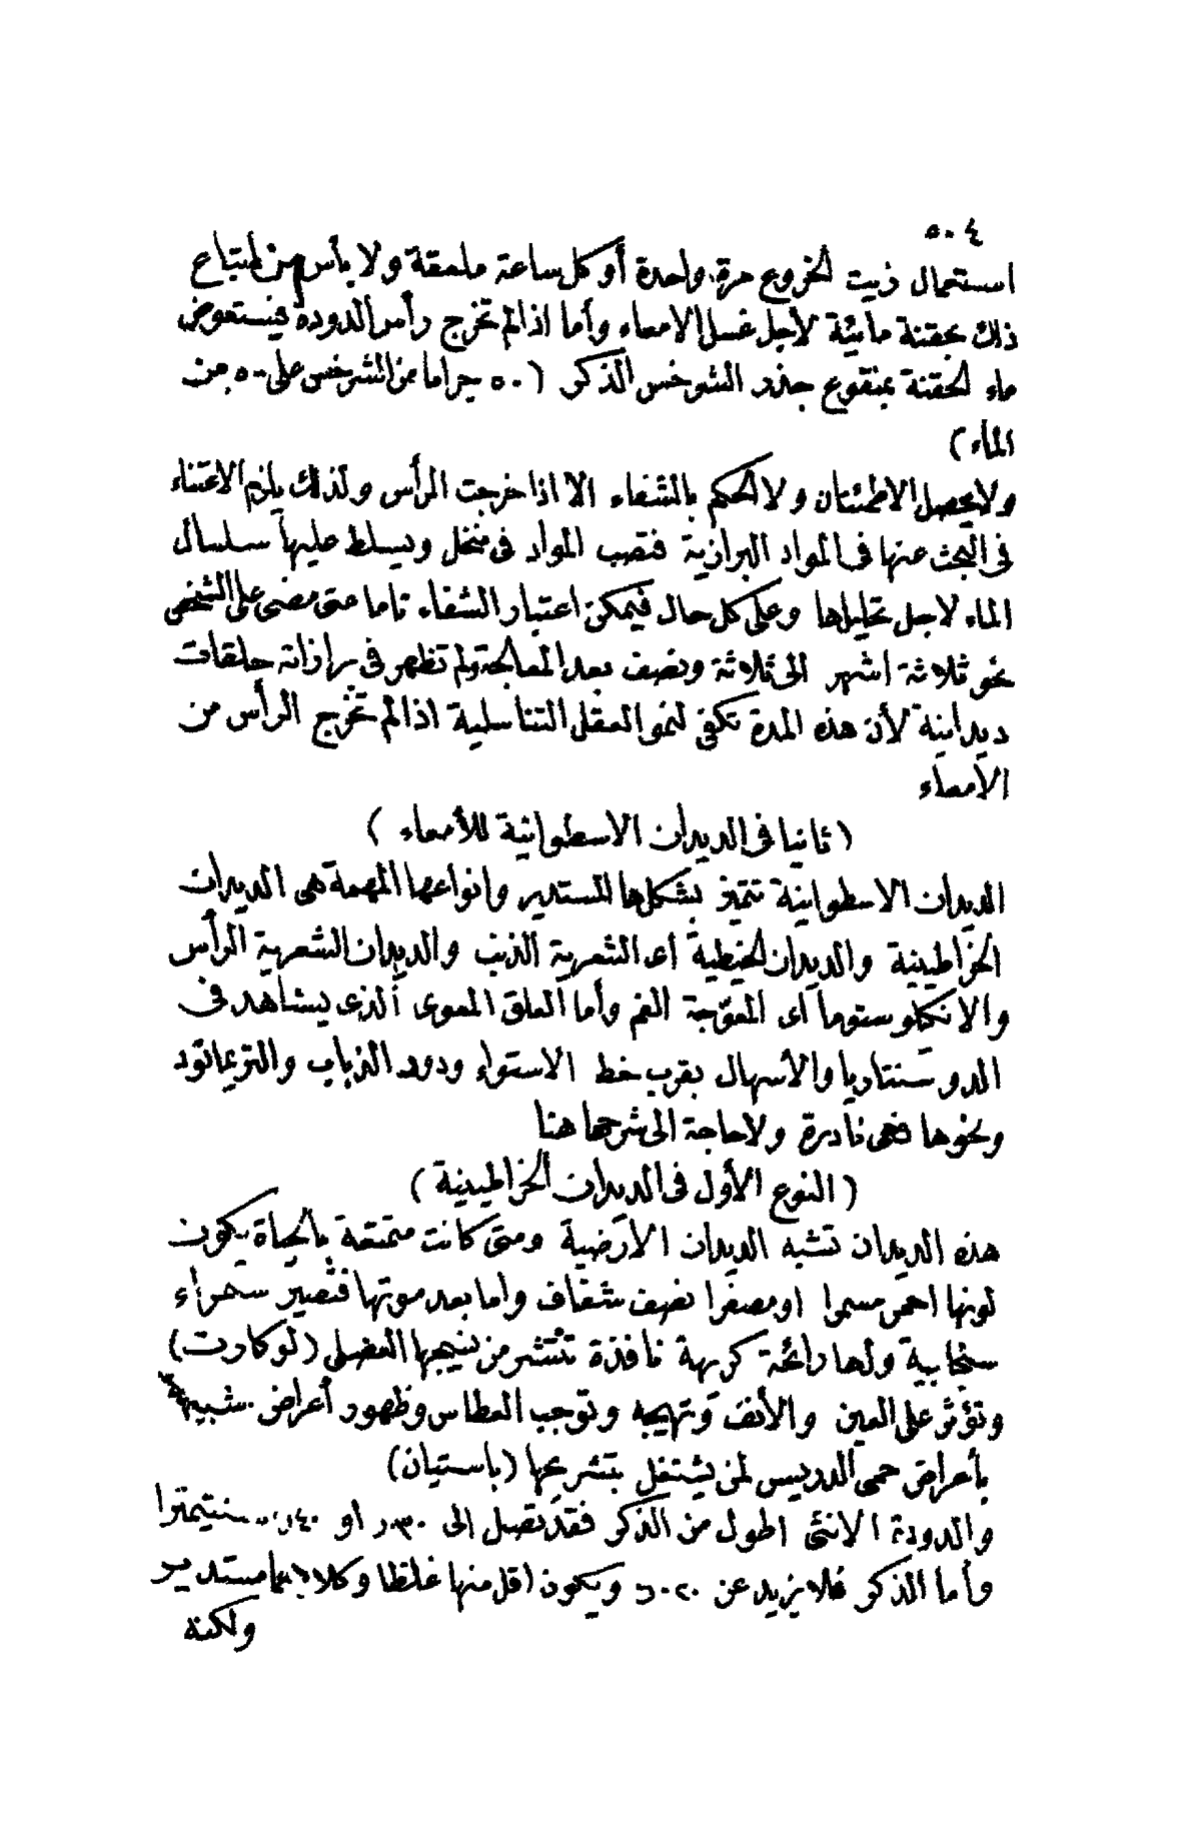 ٥٠٤
استعمال زيت الخروع مرة واحدة أو كل ساعة ملعقة ولا بأس من اتباع
ذلك بحقنة مائية لأجل غسل الامعاء وأما اذا لم تخرج رأس الدودة فيستعوض
ماء الحقنة بمنقوع جذر الشرخس الذكر (٥٠ جراما من الشرخس على ٥٠٠ من
الماء)
ولا يحصل الاطمئنان ولا الحكم بالشفاء الا اذا خرجت الرأس ولذلك يلزم الاعتناء
فى البحث عنها فى المواد البرازية فتصب المواد فى منخل ويسلط عليها سلسال
الماء لاجل تحليلها وعلى كل حال فيمكن اعتبار الشفاء تاما متى مضى على الشخص
نحو ثلاثة اشهر الى ثلاثة ونصف بعد المعالجة ولم تظهر فى برازاته حلقات
ديدانية لأن هذه المدة تكفى لنمو العقل التناسلية اذا لم تخرج الرأس من
الامعاء
(ثانيا فى الديدان الاسطوانية للأمعاء)
الديدان الاسطوانية تتميز بشكلها المستدير وانواعها المهمة هى الديدان
الخراطينية والديدان الخيطية اى الشعرية الذنب والديدان الشعرية الرأس
والانكلوستوما اى المعوّجة الفم وأما العلق المعوى الذى يشاهد فى
الدوسنتاريا والأسهال بقرب خط الاستواء ودود الذباب والتريماتود
ونحوها فهى نادرة ولا حاجة الى شرحها هنا
(النوع الأول فى الديدان الخراطينية)
هذه الديدان تشبه الديدان الارضية ومتى كانت متمتعة بالحياة يكون
لونها احمر مسمرا او مصفرا نصف شفاف واما بعد موتها فتصير سحراء
سنجابية ولها رائحة كريهة نافذة تنتشر من نسيجها العضلى (لوكارت)
وتؤثر على العين والأنف وتهيجه وتوجب العطاس وظهور أعراض شبيهة
بأعراض حمى الدريس لمن يشتغل بتشريحها (باستيان)
والدودة الانثى اطول من الذكر فقد تصل الى ٠٣٠ر او ٠٤٠ر سنتيمترا
وأما الذكر فلا يزيد عن ٠٢٠ر ويكون اقل منها غلظا وكلاهما مستدير
ولكنه